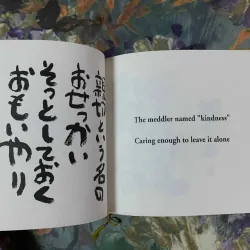 親切という名の
おせっかい
そっとしておく
おもいやり
The meddler named "kindness"
Caring enough to leave it alone